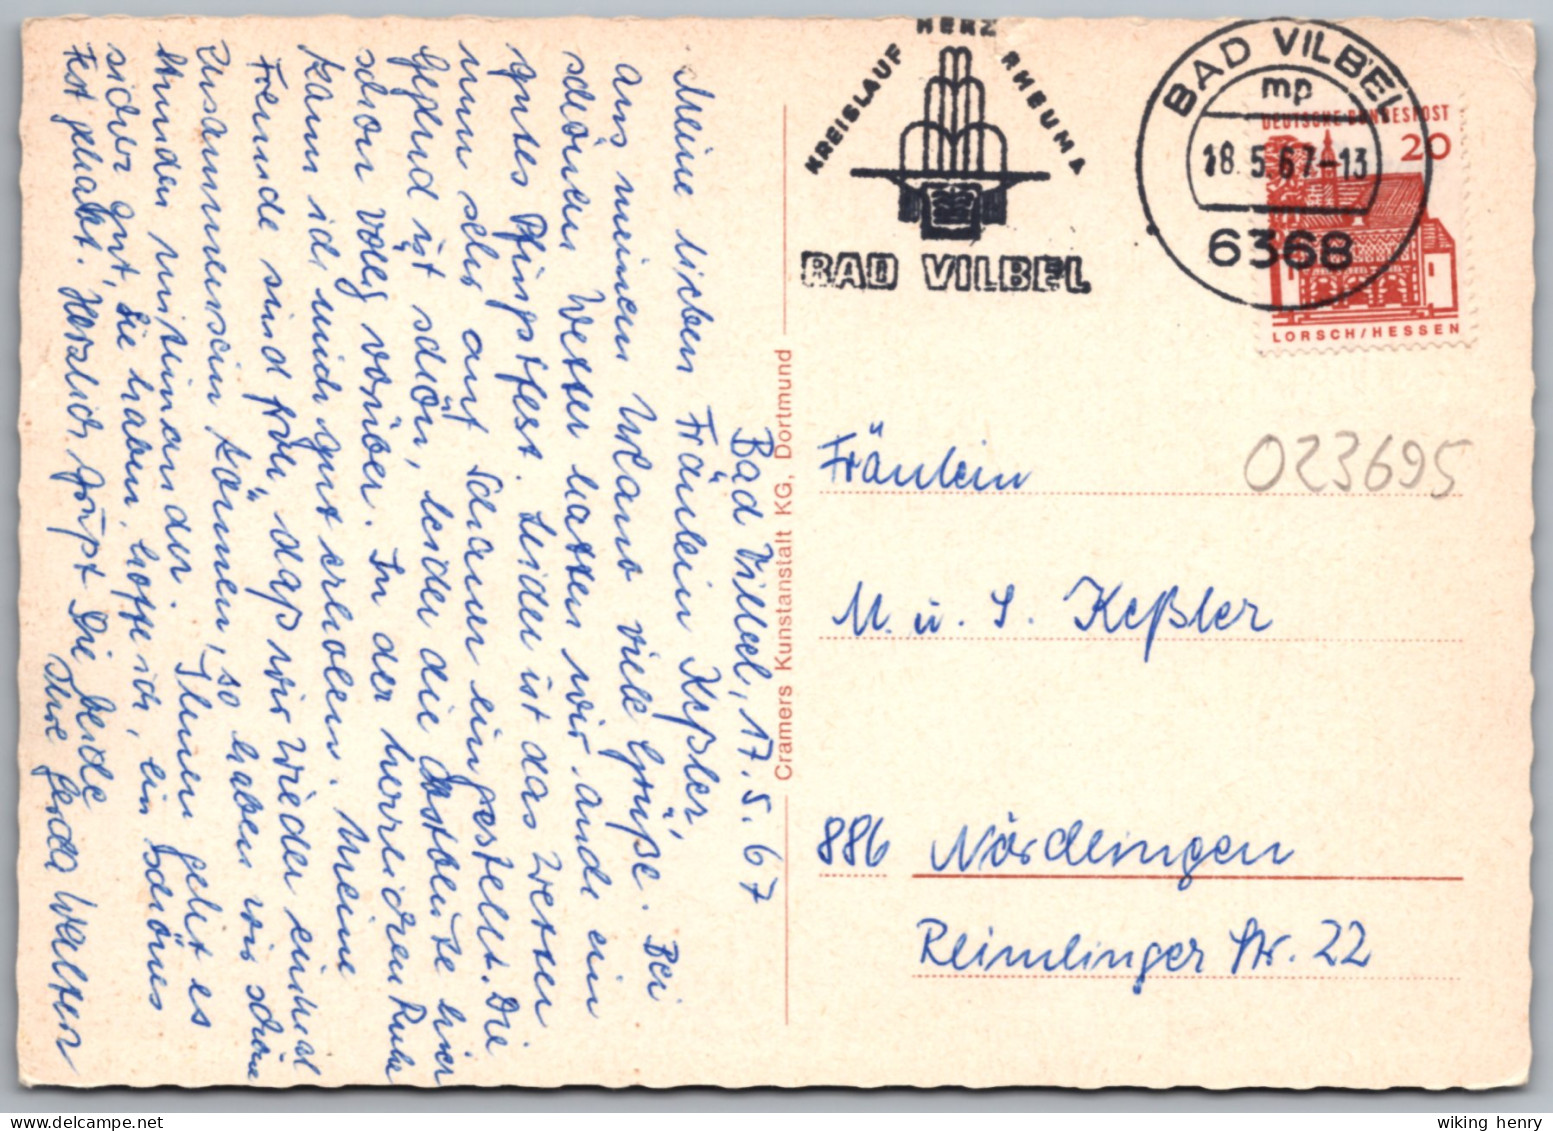 KREISLAUF HERZ RHEUMA
BAD VILBEL
BAD VILBEL
mp
18.5.67-13
6368
DEUTSCHE BUNDESPOST
20
LORSCH/HESSEN
023695
Bad Vilbel, 17. 5. 67
Meine lieben Fräulein Keßler,
aus meinem Urlaub viele Grüße. Bei
schönem Wetter hatten wir auch ein
gutes Pfingstfest. Leider ist das Wetter
nun sehr auf Schauer eingestellt. Die
Gegend ist schön, leider die Obstblüte hier
schon völlig vorüber. In der herrlichen Ruhe
kann ich mich gut erholen. Meine
Freunde sind froh, daß wir wieder einmal
Zusammensein können, so haben wir schöne
Stunden miteinander. Ihnen geht es
sicher gut, Sie haben, hoffe ich, ein schönes
Fest gehabt. Herzlich grüßt Die beide
Ihre Gerda Walter
Cramers Kunstanstalt KG, Dortmund
Fräulein
M. u. S. Keßler
886 Nördlingen
Reimlinger Str. 22
wiking henry